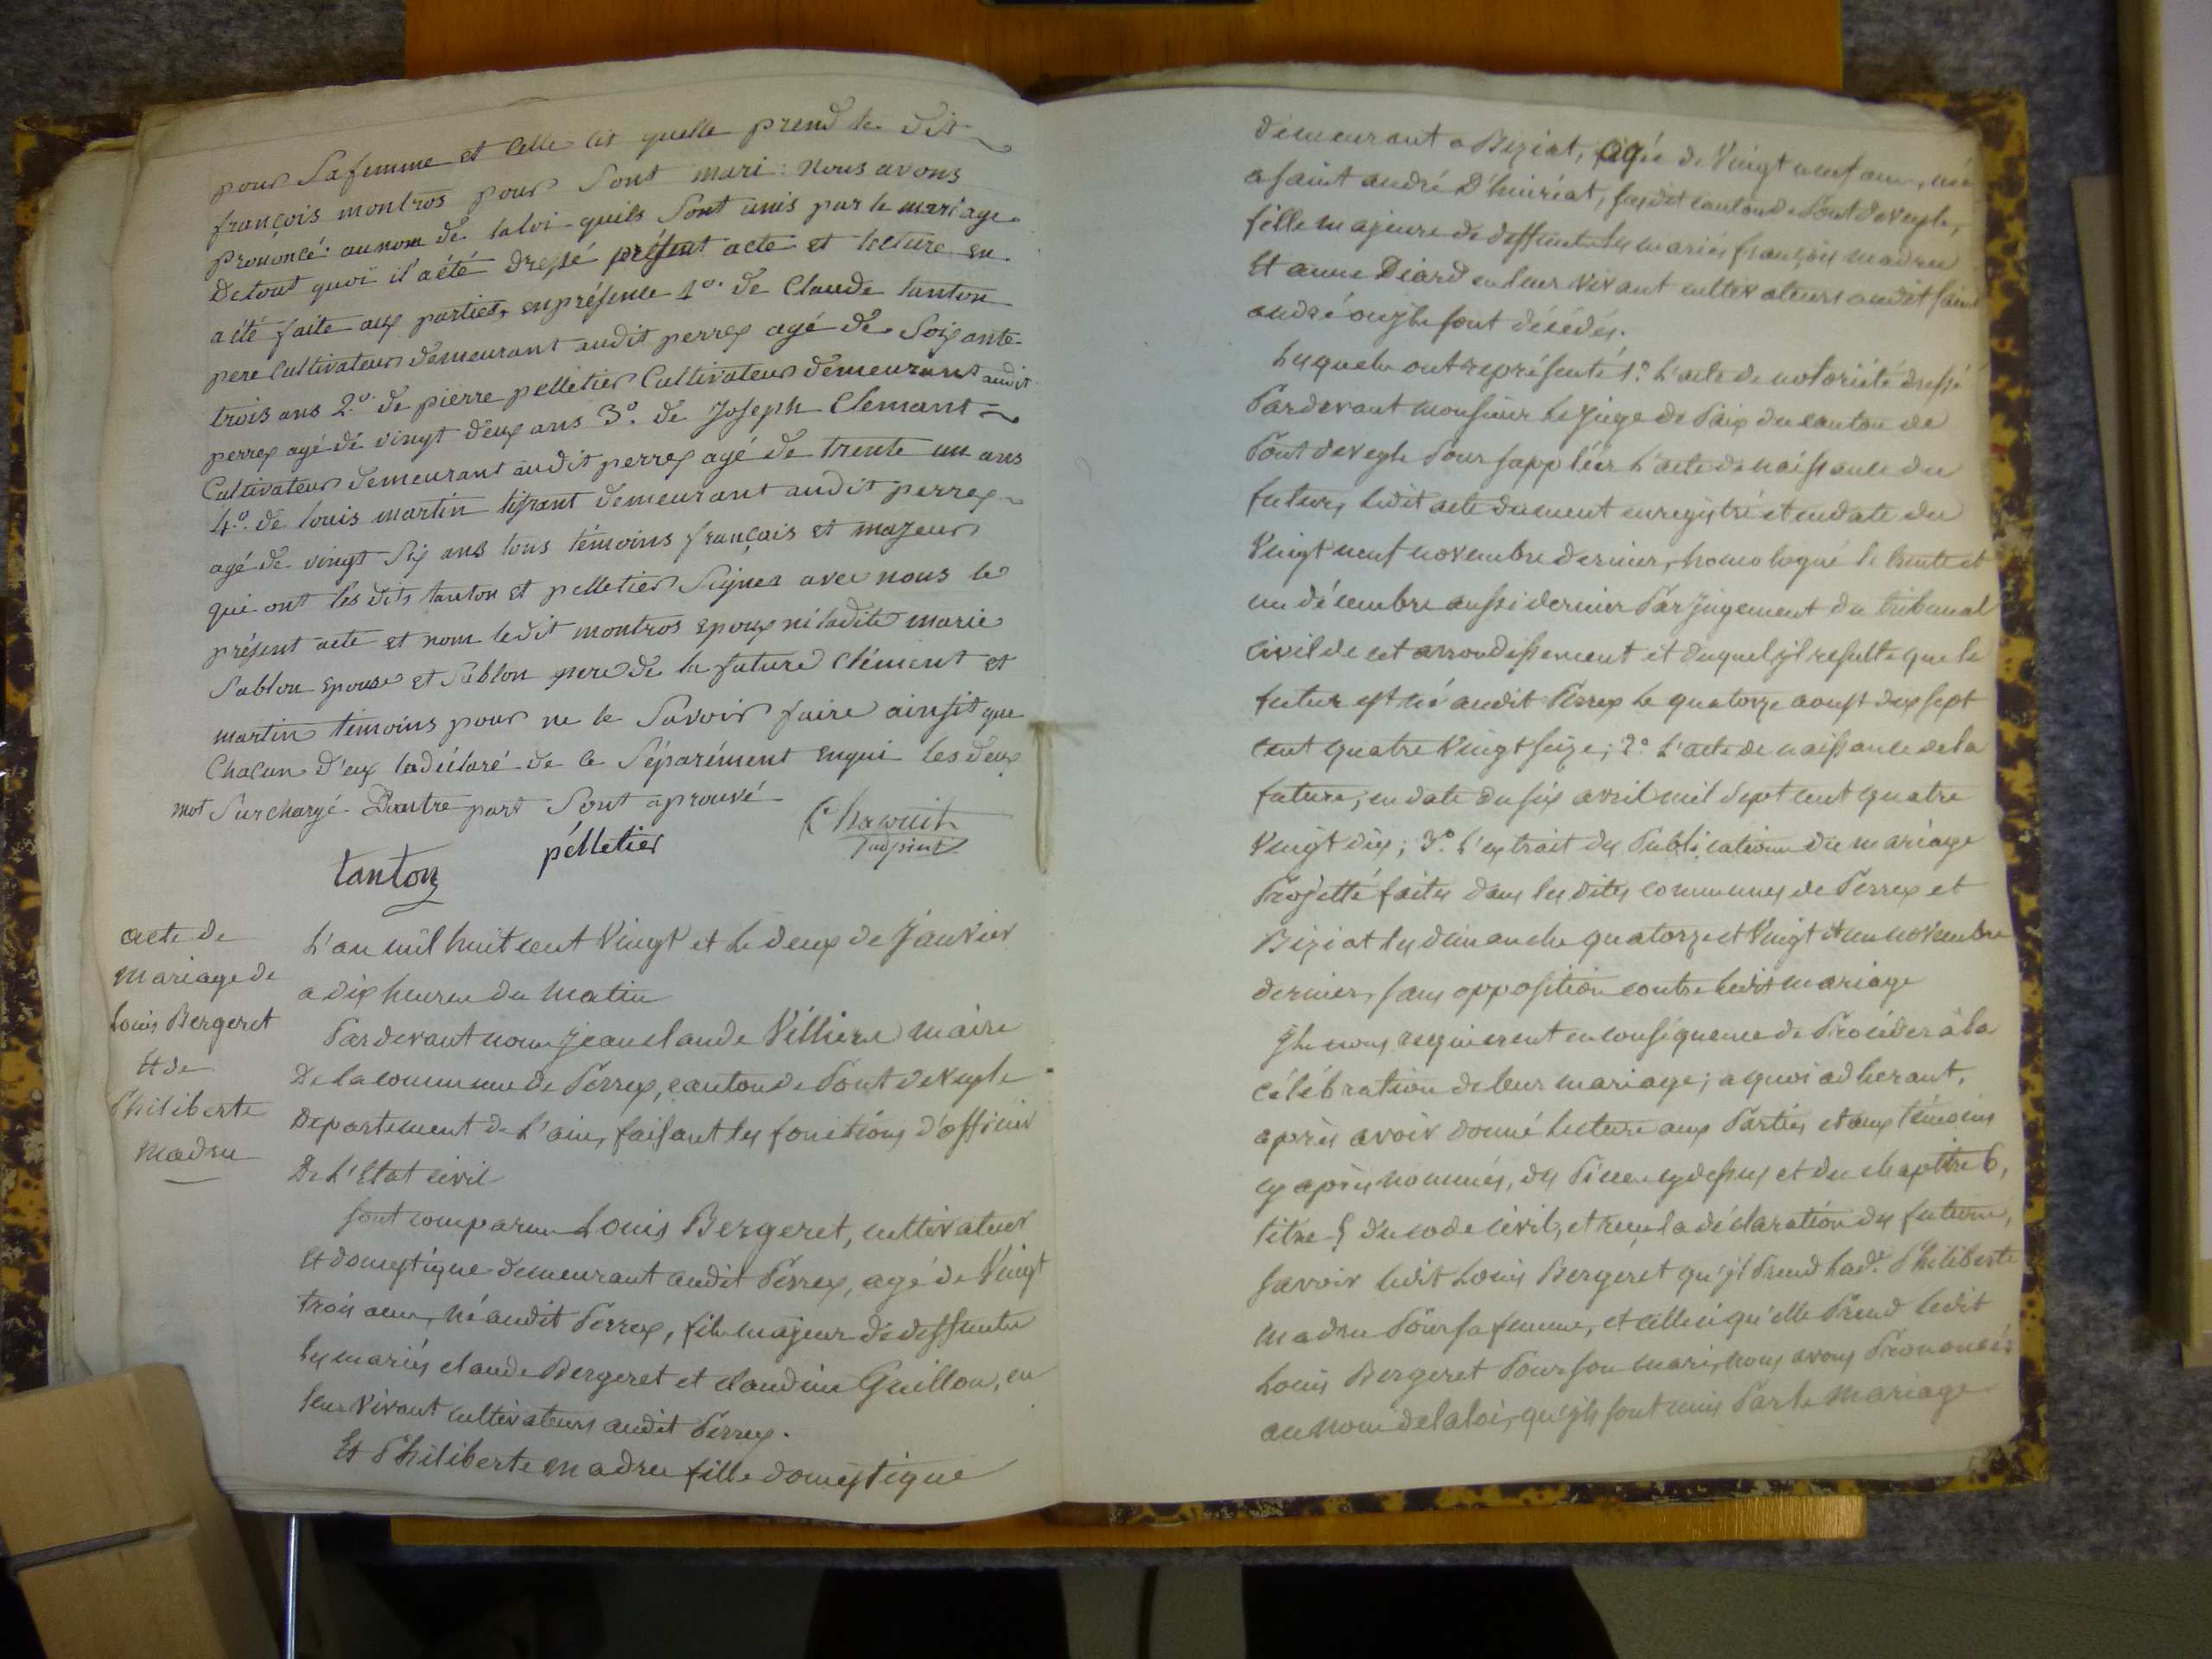 pour Sa femme et Celle Cit quelle prend le dit
françois montros pour Sont mari : Nous avons
prononcé au nom de la loi quils Sont unis par le mariage
De tout quoi il a été dressé présent acte et lecture en
a été faite aux parties, en présence 1º. de Claude tanton
pere Cultivateur demeurant audit perrex agé de Soixante
trois ans 2º. de pierre pelletier Cultivateur demeurant audit
perrex agé de vingt deux ans 3º. de Joseph Clemant
Cultivateur demeurant audit perrex agé de trente un ans
4º. de louis martin tisrant demeurant audit perrex
agé de vingt Six ans tous témoins français et majeur
qui ont les dits tanton et pelletier Signer avec nous le
présent acte et nom le dit montros Epoux ni ladite marie
Sablon Epouse et Sablon pere de la future Clément et
martin témoins pour ne le Savoir faire ainsit que
Chacun d'eux la déclaré de ce Séparément enqui les deux
mot Surchargé Dautre part Sont aprouvé
tanton pélletier adjoint
acte de
Mariage de
Louis Bergeret
Et de
Philiberte
Madru
L'an mil huit cent Vingt et le deux de Janvier
a dix heures du Matin
Pardevant nous Jean claude Villiere Maire
De la commune de Perrex, canton de Pont de Veyle
Departement de L'ain, faisant les fonctions d'officier
De L'Etat civil
Sont comparus Louis Bergeret, cultivateur
Et domestique demeurant audit Perrex, agé de Vingt
trois ans, Né audit Perrex, fils majeur de deffunts
les mariés claude Bergeret et claudine Guillon, en
leur vivant cultivateurs audit Perrex.
Et Philiberte Madru fille domestique
demeurant a Biziat, agée de Vingt neuf ans, née
a saint andré D'huiriat, susdit canton de Pont de Veyle,
fille majeure de deffunts les mariés françois madru
Et anne Diard en leur vivant cultivateurs audit saint
andré où ils sont décédés.
Lesquels ont représenté 1º. L'acte de notoriété dressé
Pardevant monsieur le Juge de Paix du canton de
Pont de Veyle Pour suppléer L'acte de naissance du
futur, ledit acte dument enregistré et en date du
Vingt neuf novembre dernier, homologué le trente et
un décembre aussi dernier Par Jugement du tribunal
civil de cet arrondissement et duquel il resulte que le
futur est né audit Perrex le quatorze aoust dix sept
cent quatre Vingt seize ; 2º. L'acte de naissance de la
future, en date du six avril mil sept cent quatre
Vingt dix ; 3º. L'extrait des Publications du mariage
Projetté faites dans les dites communes de Perrex et
Biziat les dimanche quatorze et Vingt et un novembre
dernier, sans opposition contre ledit mariage
Ils nous requierent en conséquence de Procéder à la
célébration de leur mariage ; a quoi adherant,
après avoir donné lecture aux Parties et aux témoins
cy après nommés, des Pièces cydessus et du chapitre 6,
titre 5 du code civil, et reçu la déclaration des futurs,
savoir ledit Louis Bergeret qu'il Prend lade. Philiberte
Madru Pour sa femme, et celleci qu'elle Prend ledit
Louis Bergeret Pour son mari, nous avons Prononcés
au nom de la loi, qu'ils sont unis Par le Mariage